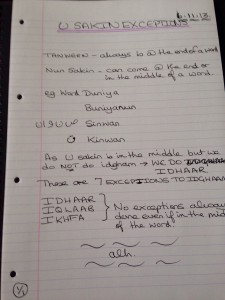 6.11.13
ن SAKIN EXCEPTIONS
TANWEEN - always is @ the end of a word
Nun Sakin - can come @ the end or
in the middle of a word.
eg Word Duniya
Buniyanun
Sinwan
Kinwan
As ن sakin is in the middle but we
do NOT do idgham → WE DO
IDHAAR
These are EXCEPTIONS TO IDGHAAM
IDHAAR
IQLAAB
IKHFA
} No exceptions always
done even if in the mid
of the word.
alh.